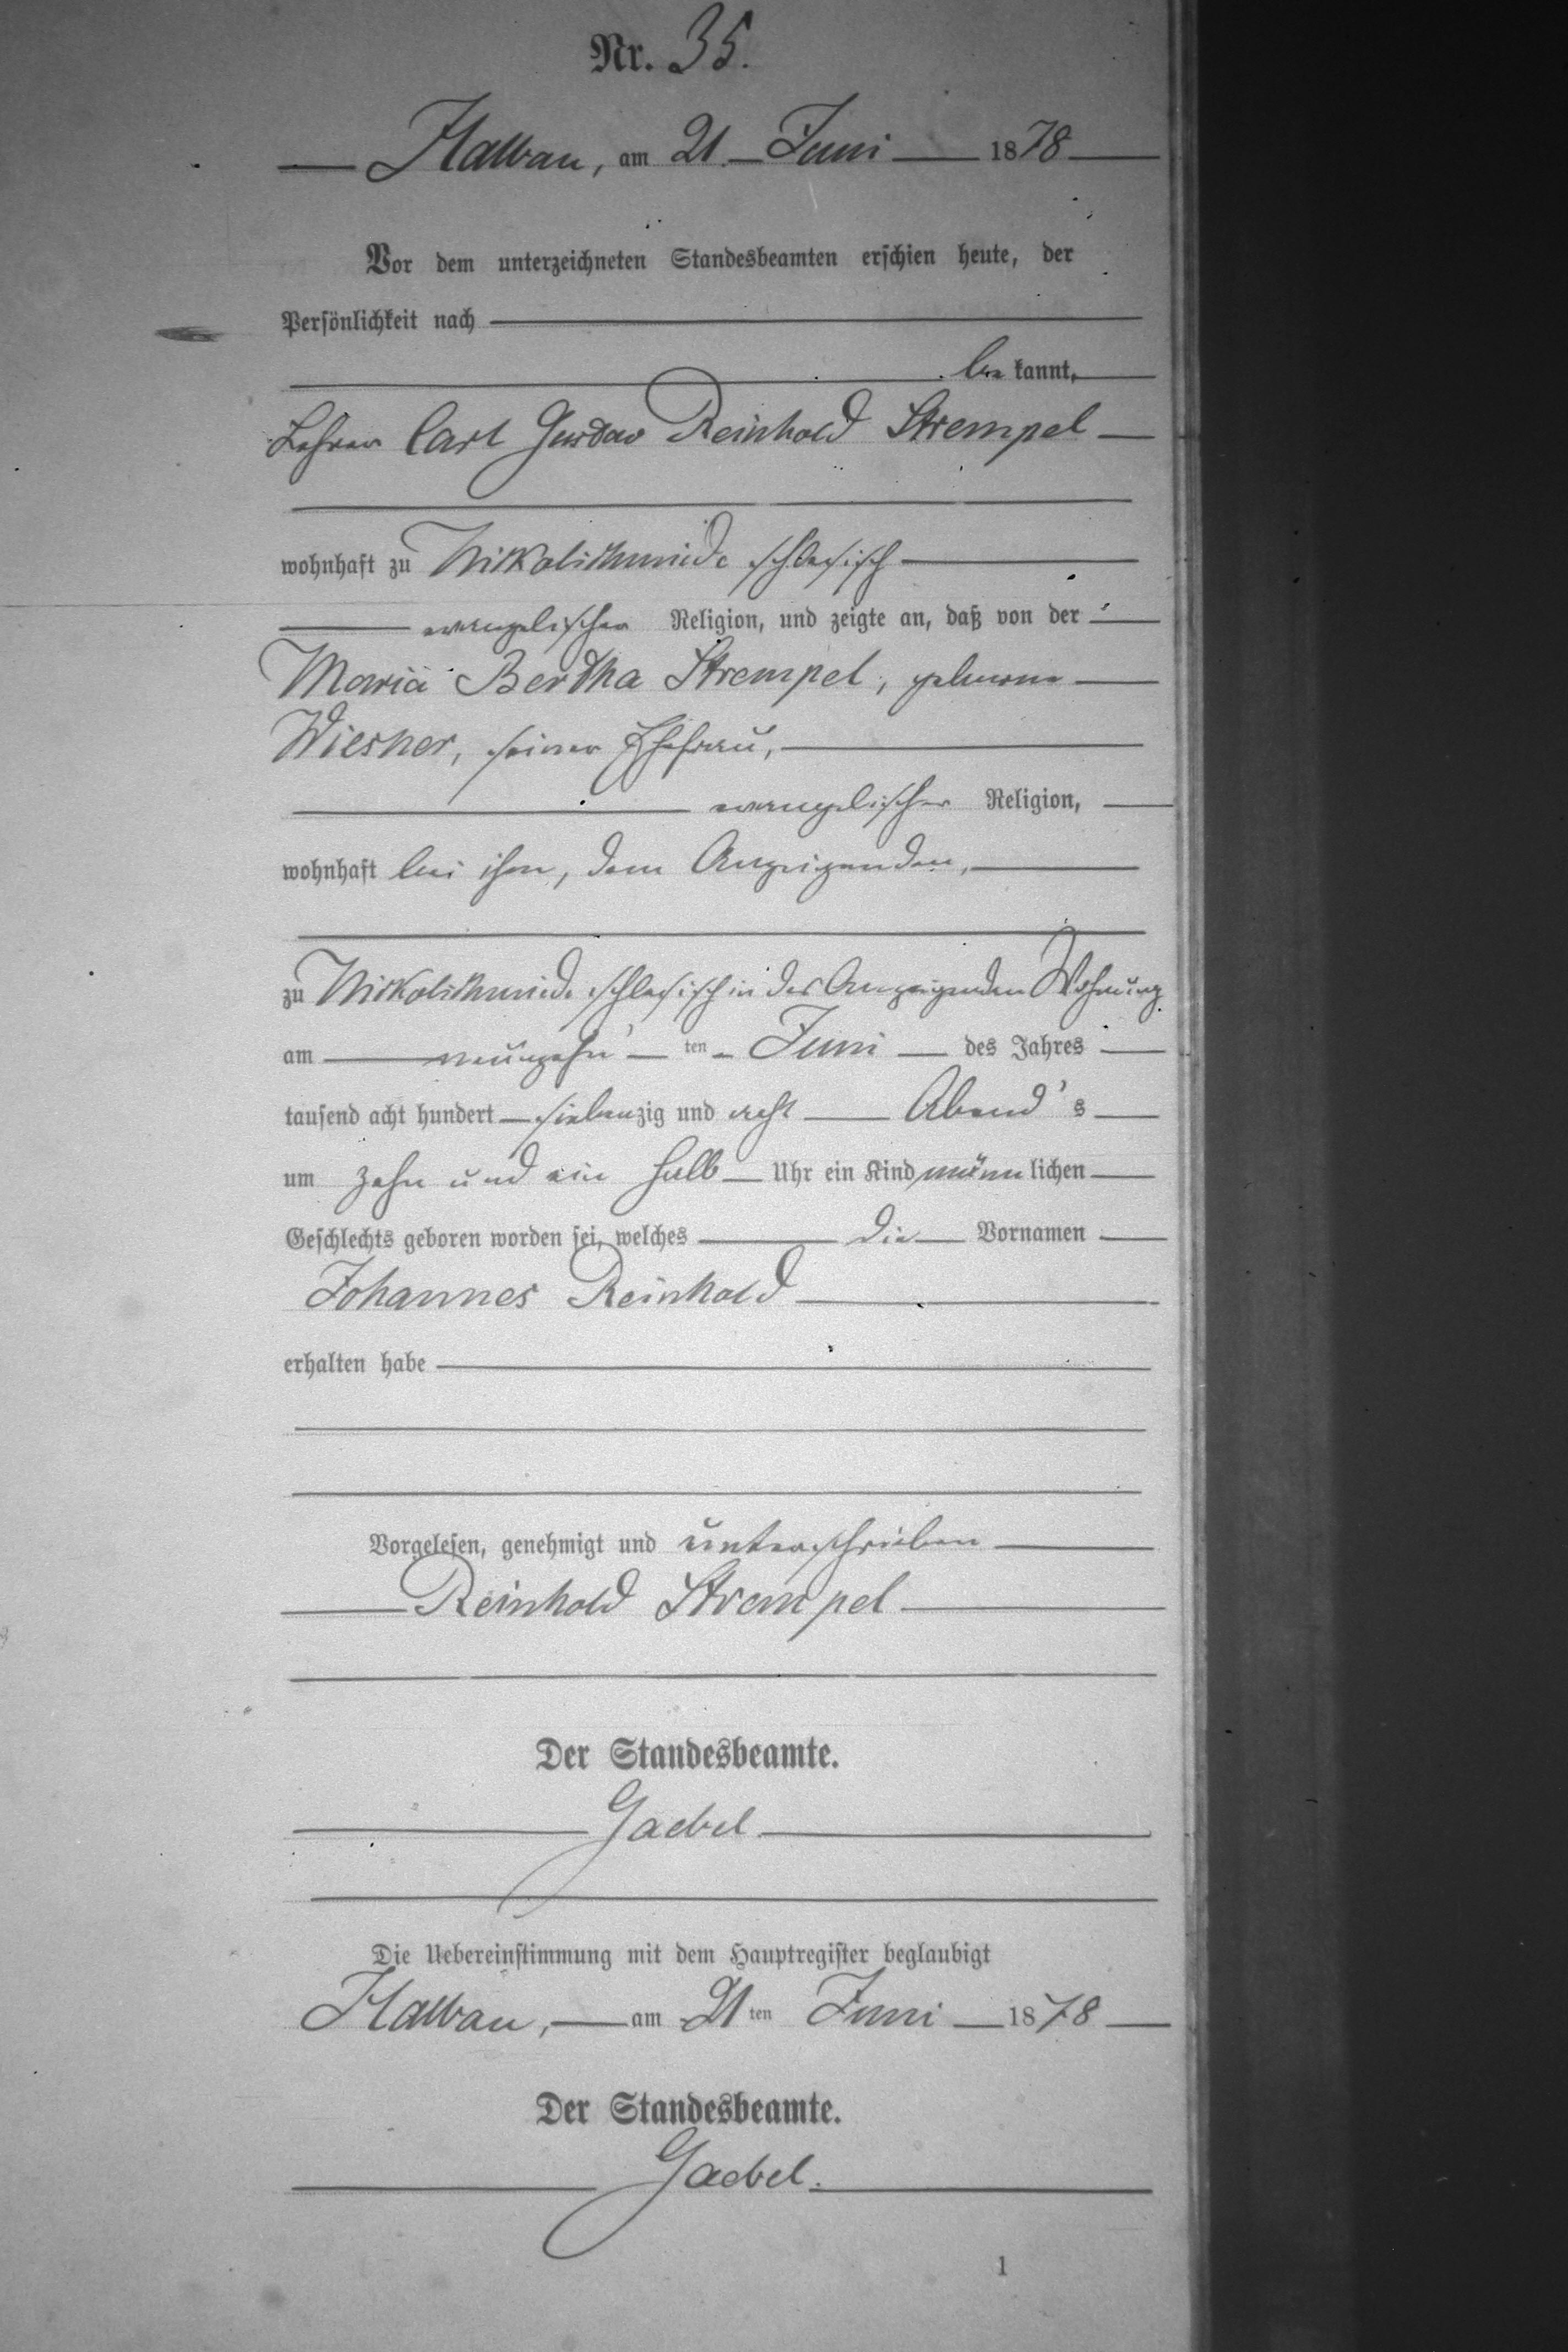 Nr. 35.
Halbau, am 21. Juni 1878
Vor dem unterzeichneten Standesbeamten erschien heute, der
Persönlichkeit nach
bekannt,
Lehrer Carl Gustav Reinhold Strempel
wohnhaft zu Nikolschmiede schlesisch
evangelischer Religion, und zeigte an, daß von der
Maria Bertha Strempel, geborene
Wiesner, seiner Ehefrau,
evangelischer Religion,
wohnhaft bei ihm, dem Anzeigenden,
zu Nikolschmiede schlesisch in des Anzeigenden Wohnung
am neunzehnten Juni des Jahres
tausend acht hundert siebenzig und acht Abend's
um zehn und ein halb Uhr ein Kind männlichen
Geschlechts geboren worden sei, welches die Vornamen
Johannes Reinhold
erhalten habe
Vorgelesen, genehmigt und unterschrieben
Reinhold Strempel
Der Standesbeamte.
Gaebel
Die Uebereinstimmung mit dem Hauptregister beglaubigt
Halbau, am 21ten Juni 1878
Der Standesbeamte.
Gaebel.
1